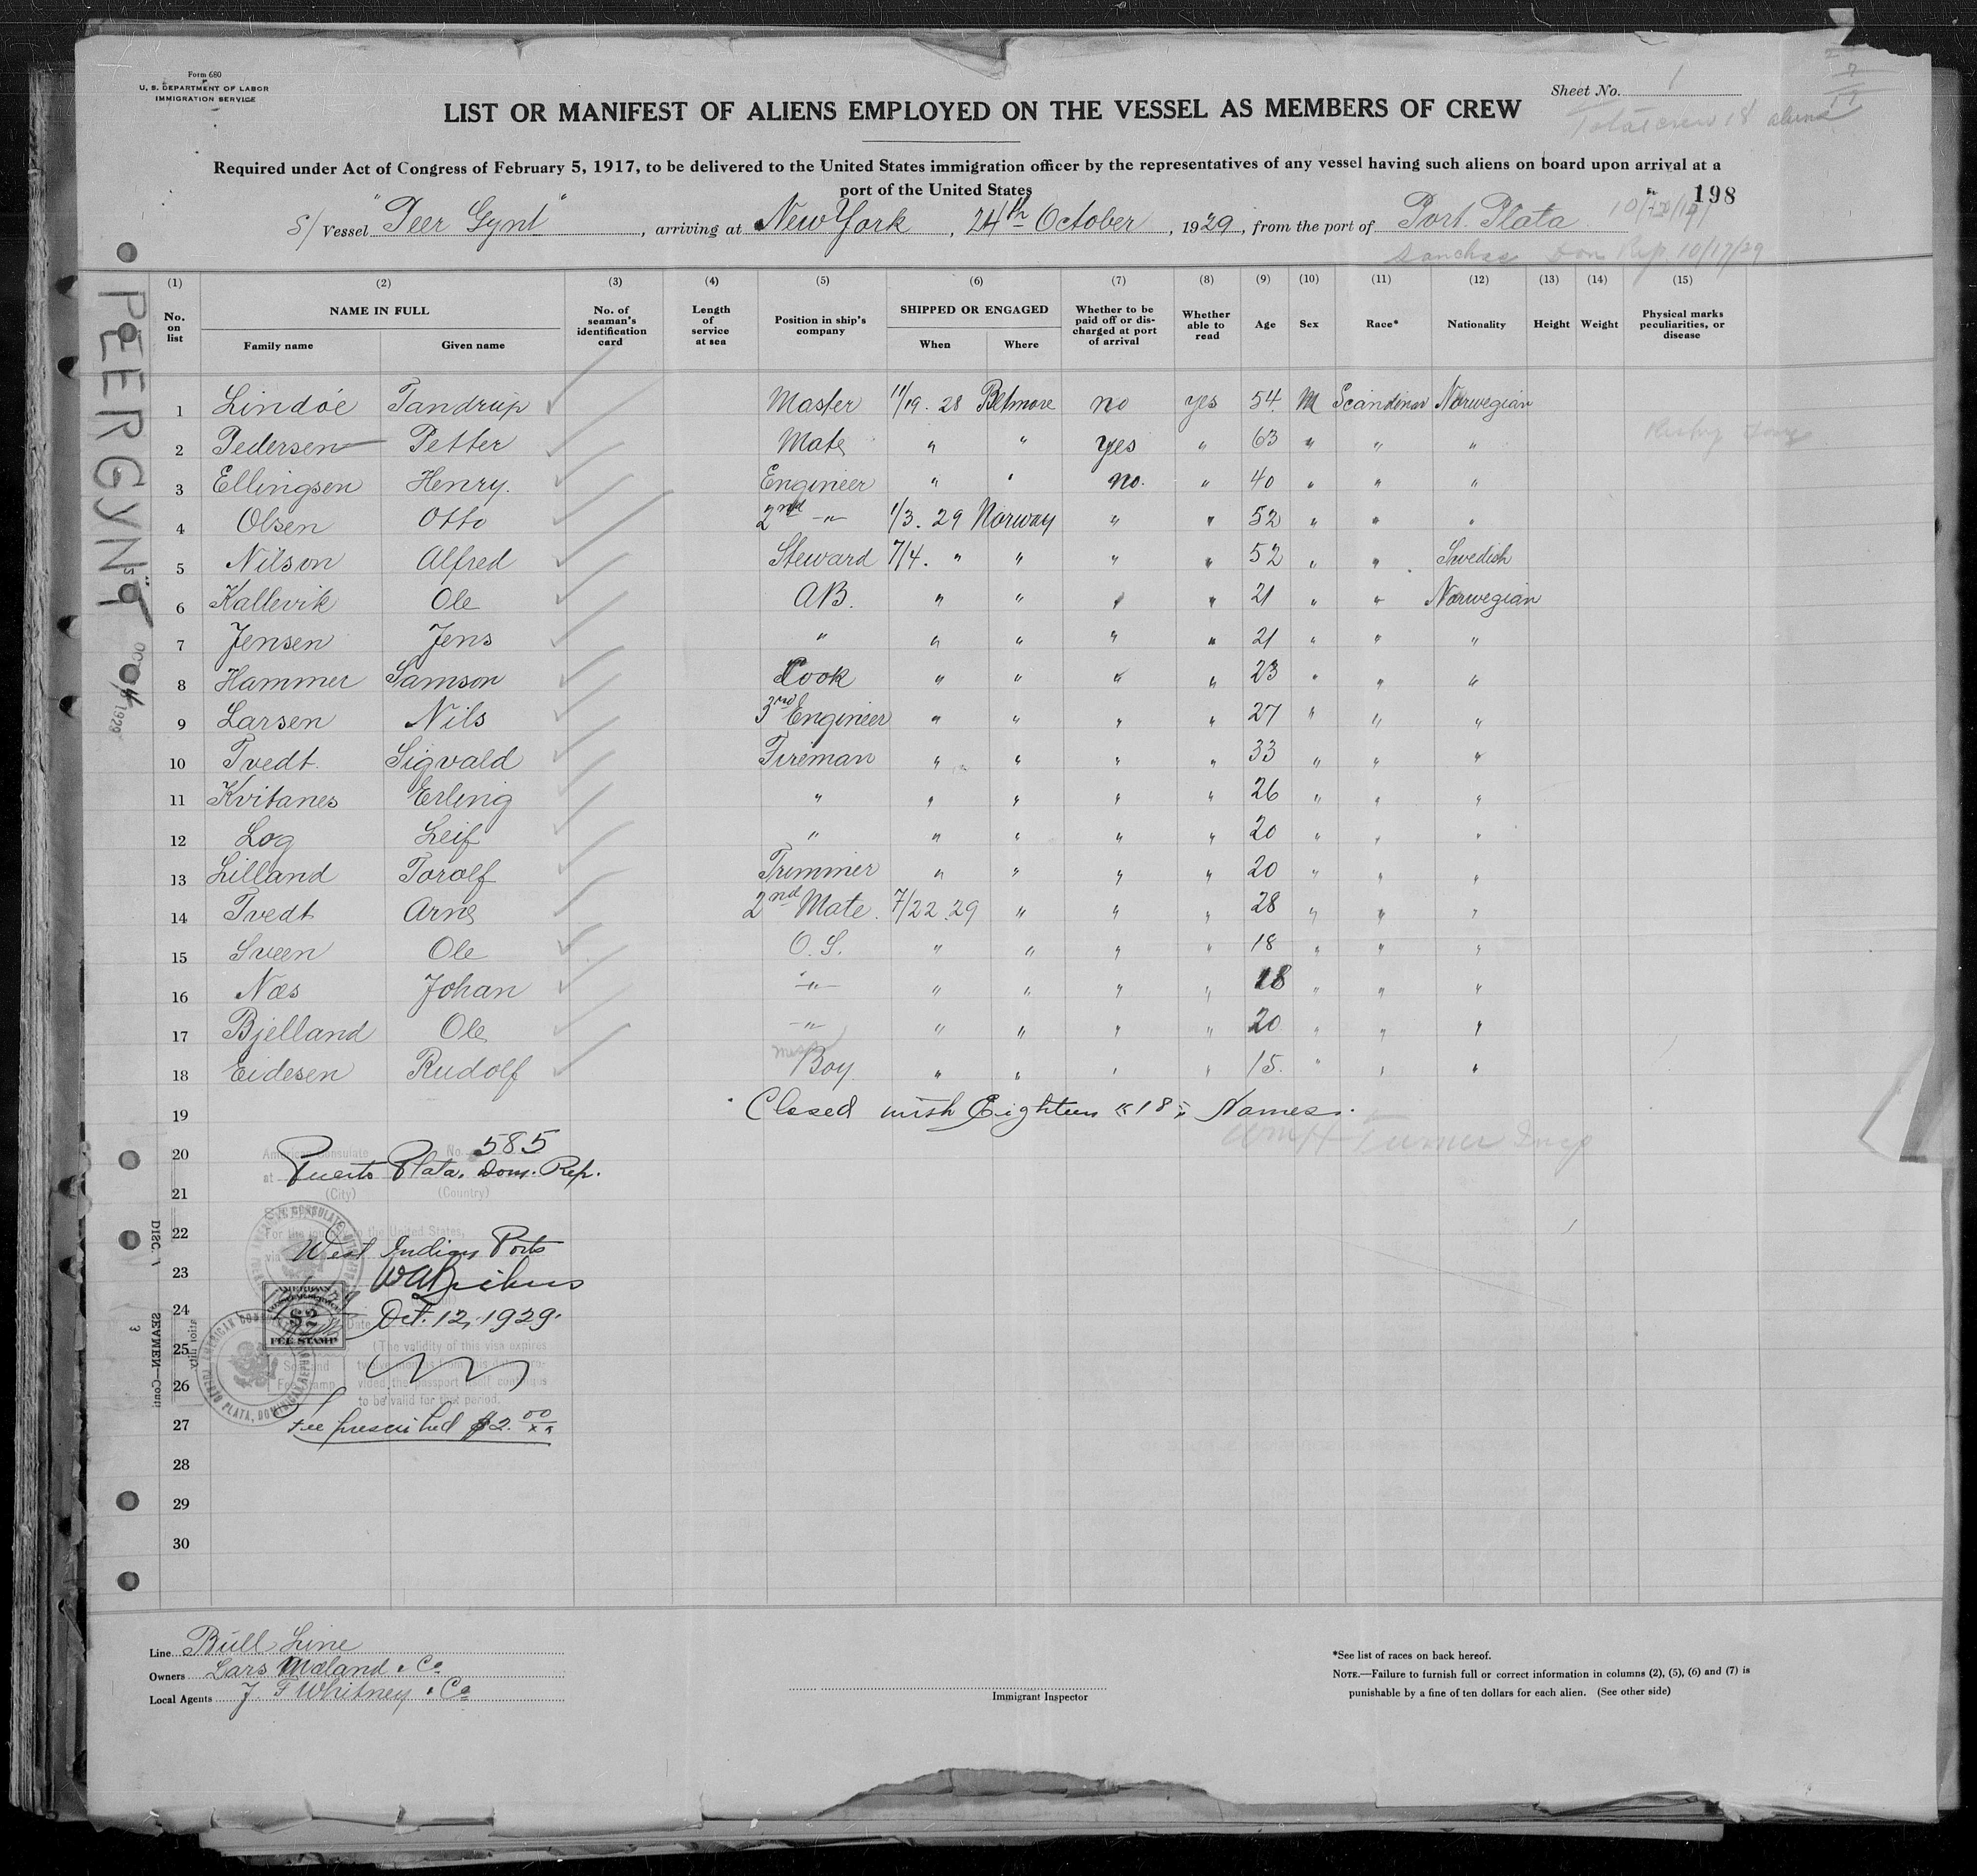 Form 680
U. S. DEPARTMENT OF LABOR
IMMIGRATION SERVICE
Sheet No. 1
LIST OR MANIFEST OF ALIENS EMPLOYED ON THE VESSEL AS MEMBERS OF CREW
Total crew 18 aliens
Required under Act of Congress of February 5, 1917, to be delivered to the United States immigration officer by the representatives of any vessel having such aliens on board upon arrival at a
port of the United States
198
S/ Vessel "Peer Gynt", arriving at New York, 24th October, 1929, from the port of Port. Plata
Sanchez Dom Rep. 10/17/29
(1) (2) (3) (4) (5) (6) (7) (8) (9) (10) (11) (12) (13) (14) (15)
No. on list NAME IN FULL Family name Given name No. of seaman's identification card Length of service at sea Position in ship's company SHIPPED OR ENGAGED When Where Whether to be paid off or discharged at port of arrival Whether able to read Age Sex Race* Nationality Height Weight Physical marks peculiarities, or disease
1 Lindöe Tandrup Master 11/19. 28 Beltmore no yes 54. M Scandinav Norwegian
2 Pedersen Petter Mate " " yes " 63 " " "
3 Ellingsen Henry. Engineer " " no. " 40 " " "
4 Olsen Otto 2nd -"- 1/3. 29 Norway " " 52 " " "
5 Nilson Alfred Steward 7/4. " " " " 52 " " Swedish
6 Kallevik Ole AB. " " " " 21 " " Norwegian
7 Jensen Jens " " " " " 21 " " "
8 Hammer Samson Cook " " " " 23 " " "
9 Larsen Nils 3rd Engineer " " " " 27 " " "
10 Tvedt. Sigvald Fireman " " " " 33 " " "
11 Kvitanes Erling " " " " " 26 " " "
12 Log Leif " " " " " 20 " " "
13 Lilland Torolf Trimmer " " " " 20 " " "
14 Tvedt Arne 2nd Mate. 7/22. 29 " " " 28 " " "
15 Sveen Ole O. S. " " " " 18 " " "
16 Næs Johan -"- " " " " 18 " " "
17 Bjelland Ole -"- " " " " 20 " " "
18 Eidesen Rudolf mess Boy " " " " 15. " " "
19 Closed with Eighteen "18" Names.
Wm H Turner Insp
20 American Consulate No. 585
at Puerto Plata, Dom. Rep.
21 (City) (Country)
22 For the journey to the United States,
via West Indian Ports
23
24 Date Oct. 12, 1929.
AMERICAN CONSULAR SERVICE $2 FEE STAMP
25 (The validity of this visa expires
Seal and Fee Stamp twelve months from this date provided the passport itself continues
26 to be valid for that period.
27 Fee prescribed $2.00
AMERICAN CONSULATE PUERTO PLATA, DOMINICAN REPUBLIC
28
29
30
PEER GYNT
1929
SEAMEN—Cont
Line Bull Line
Owners Lars Mæland & Co
Local Agents J F Whitney & Co
Immigrant Inspector
*See list of races on back hereof.
NOTE.—Failure to furnish full or correct information in columns (2), (5), (6) and (7) is
punishable by a fine of ten dollars for each alien. (See other side)